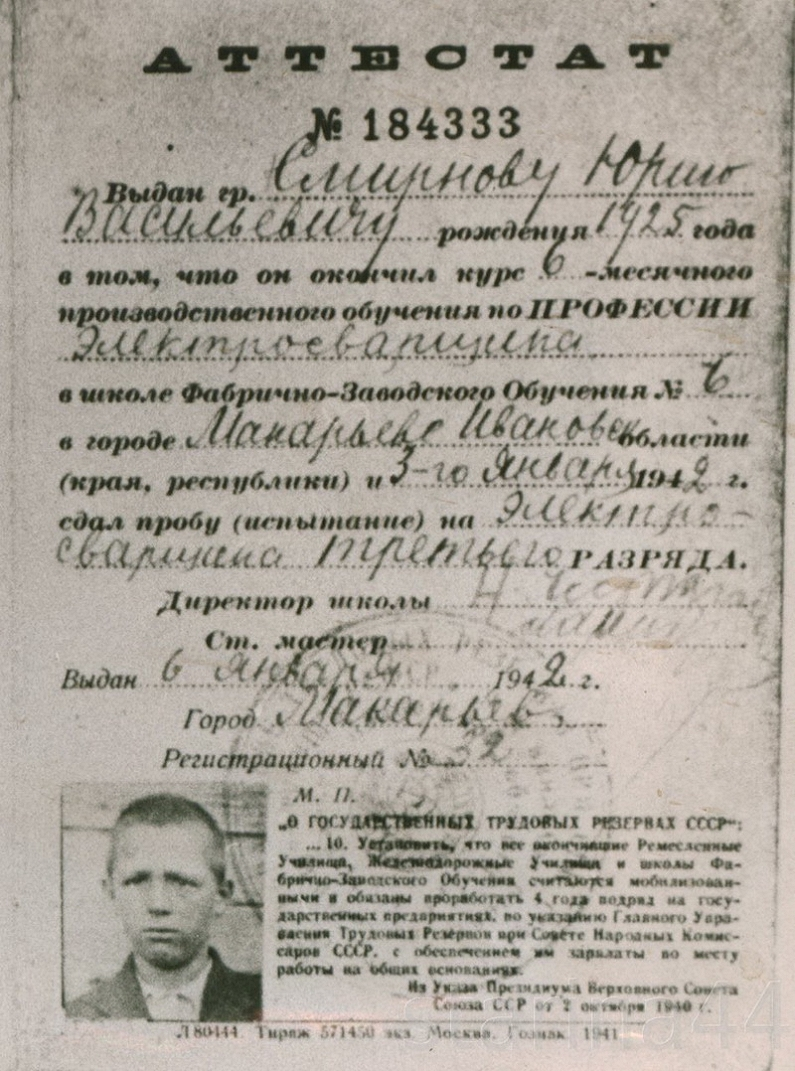 АТТЕСТАТ
№ 184333
Выдан гр. Смирнову Юрию
Васильевичу рождения 1925 года
в том, что он окончил курс 6-месячного
производственного обучения по ПРОФЕССИИ
Электросварщика
в школе Фабрично-Заводского Обучения № 6
в городе Макарьеве Ивановск области
(края, республики) и 3-го Января 1942 г.
сдал пробу (испытание) на Электро-
сварщика третьего РАЗРЯДА.
Директор школы
Ст. мастер
Выдан 6 января 1942 г.
Город Макарьев.
Регистрационный № 32
М. П.
„О ГОСУДАРСТВЕННЫХ ТРУДОВЫХ РЕЗЕРВАХ СССР“:
...10. Установить, что все окончившие Ремесленные
Училища, Железнодорожные Училища и школы Фа-
брично-Заводского Обучения считаются мобилизован-
ными и обязаны проработать 4 года подряд на госу-
дарственных предприятиях, по указанию Главного Упра-
вления Трудовых Резервов при Совете Народных Комис-
саров СССР, с обеспечением им зарплаты по месту
работы на общих основаниях.
Из Указа Президиума Верховного Совета
Союза ССР от 2 октября 1940 г.
Л80444. Тираж 571450 экз. Москва, Гознак, 1941